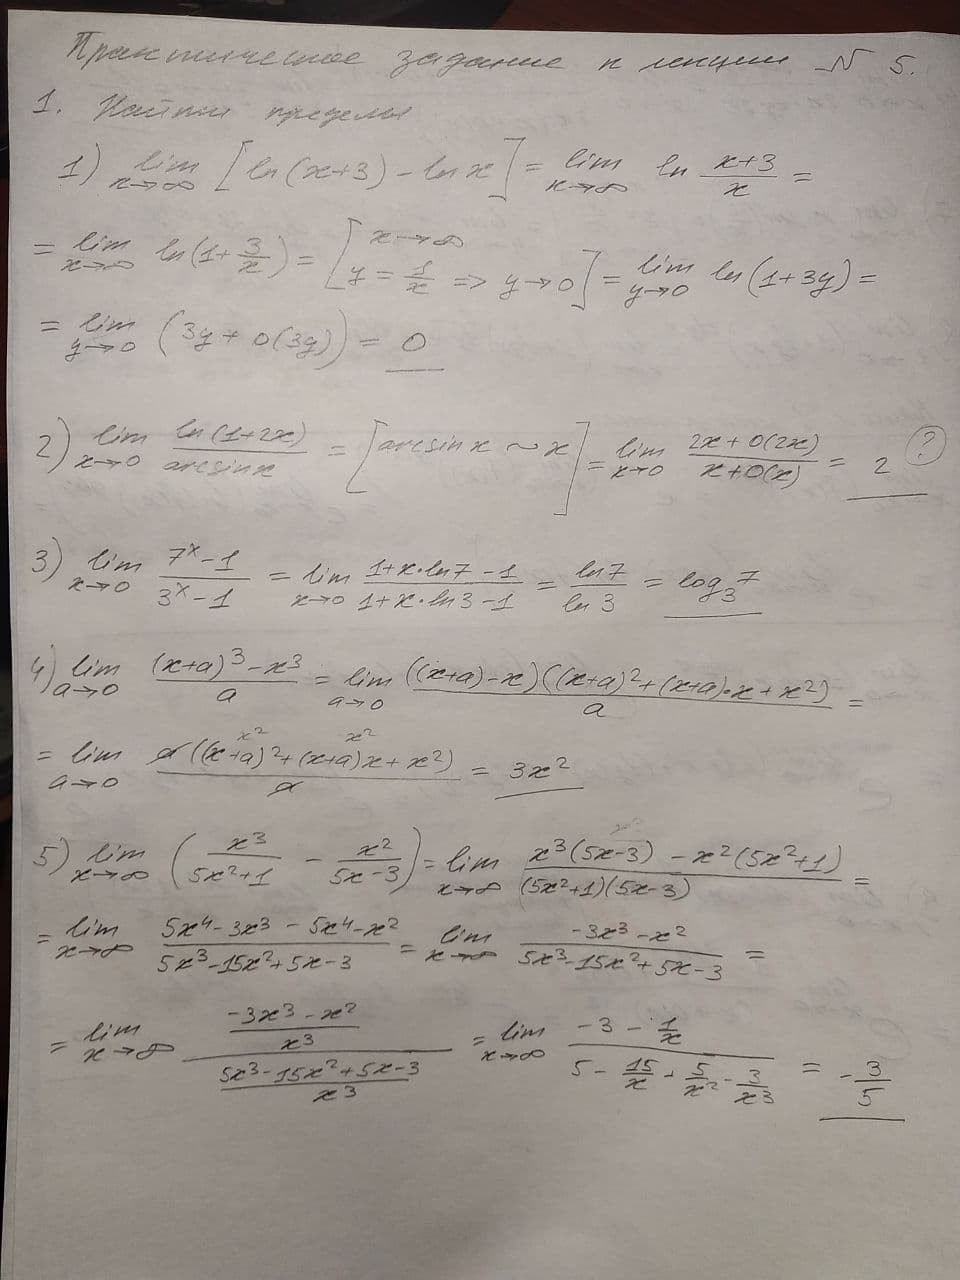 Практическое задание к лекции № 5.
1. Найти пределы
1) lim x→∞ [ln(x+3) - ln x] = lim x→∞ ln (x+3)/x =
= lim x→∞ ln(1+3/x) = [x→∞ y = 1/x => y→0] = lim y→0 ln(1+3y) =
= lim y→0 (3y + o(3y)) = 0
2) lim x→0 ln(1+2x)/arcsin x = [arcsin x ~ x] = lim x→0 (2x + o(2x))/(x + o(x)) = 2 (?)
3) lim x→0 (7^x - 1)/(3^x - 1) = lim x→0 (1+x·ln7 - 1)/(1+x·ln3 - 1) = ln7/ln3 = log_3 7
4) lim a→0 ((x+a)^3 - x^3)/a = lim a→0 ((x+a)-x)((x+a)^2+(x+a)·x+x^2)/a =
x^2 x^2
= lim a→0 a((x+a)^2+(x+a)x+x^2)/a = 3x^2
5) lim x→∞ (x^3/(5x^2+1) - x^2/(5x-3)) = lim x→∞ (x^3(5x-3) - x^2(5x^2+1))/((5x^2+1)(5x-3)) =
= lim x→∞ (5x^4 - 3x^3 - 5x^4 - x^2)/(5x^3 - 15x^2 + 5x - 3) = lim x→∞ (-3x^3 - x^2)/(5x^3 - 15x^2 + 5x - 3) =
= lim x→∞ ((-3x^3 - x^2)/x^3)/((5x^3 - 15x^2 + 5x - 3)/x^3) = lim x→∞ (-3 - 1/x)/(5 - 15/x + 5/x^2 - 3/x^3) = -3/5